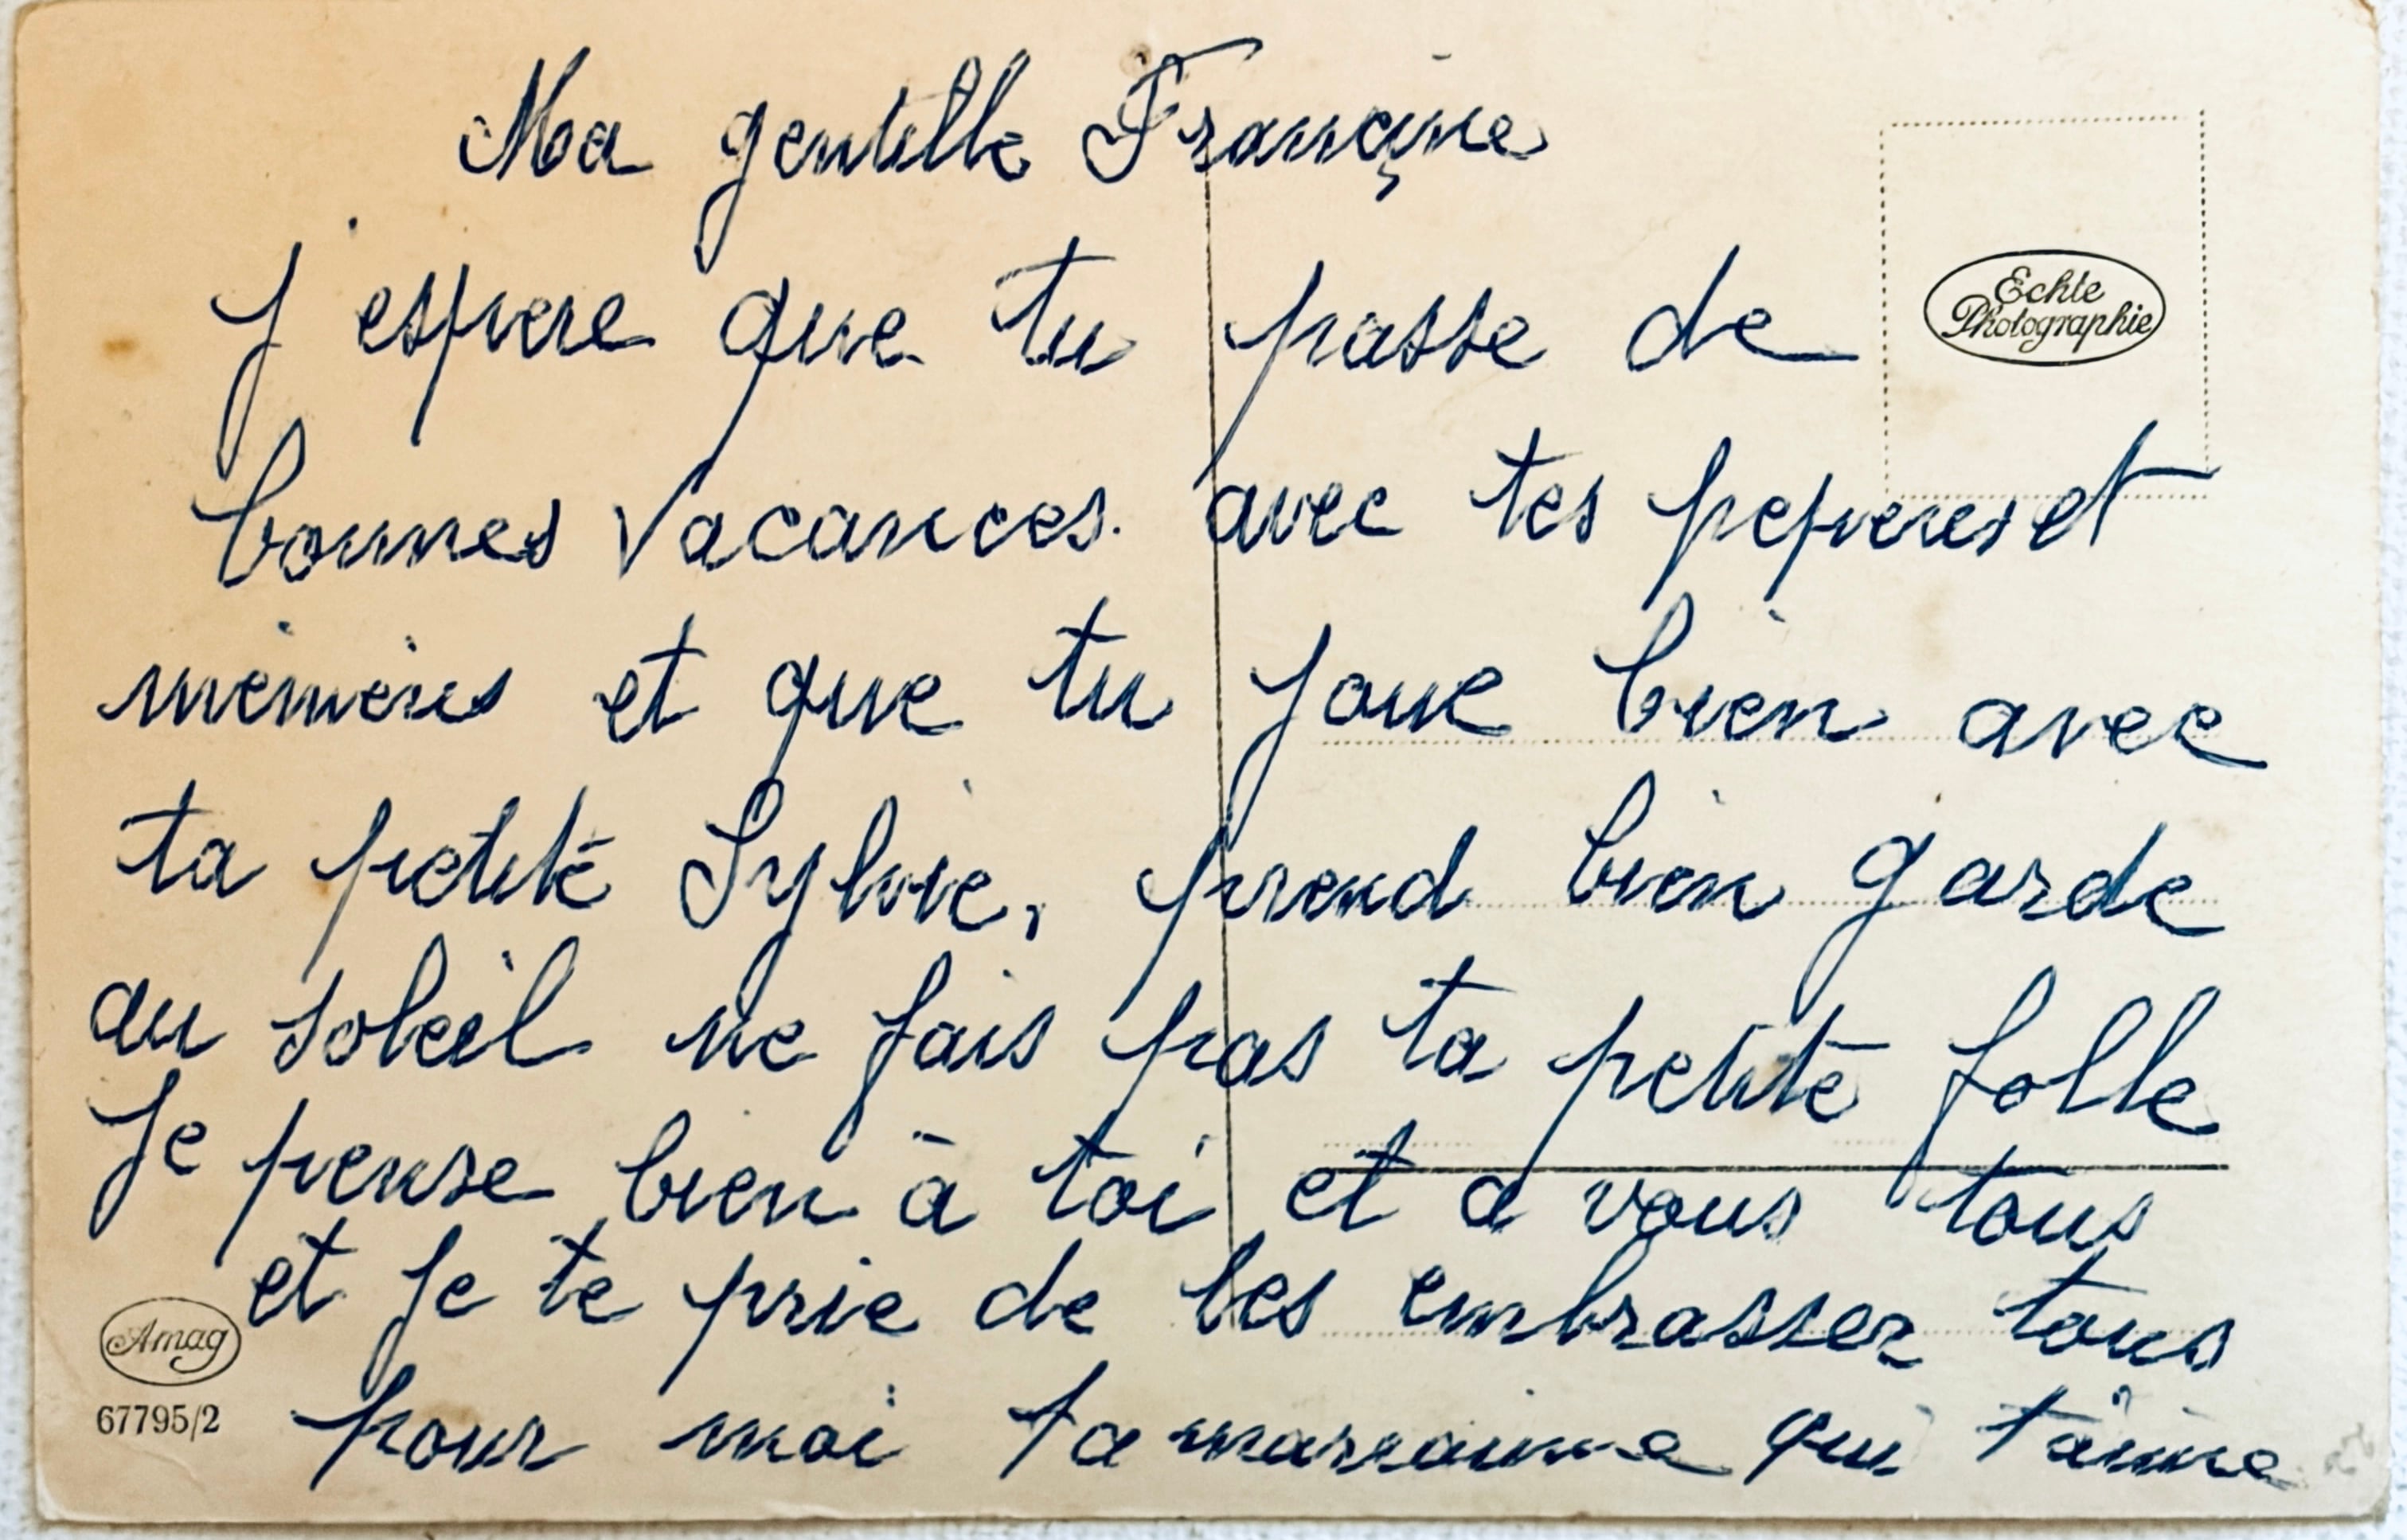 Ma gentille Françine
J'espere que tu passe de
Echte
Photographie
bonnes vacances. avec tes peperes et
mémères et que tu joue bien avec
ta petite Sylvie, prend bien garde
au soleil ne fais pas ta petite folle
Je pense bien à toi et a vous tous
et je te prie de les embrasser tous
Amag
67795/2
pour moi ta marraine qui t'aime